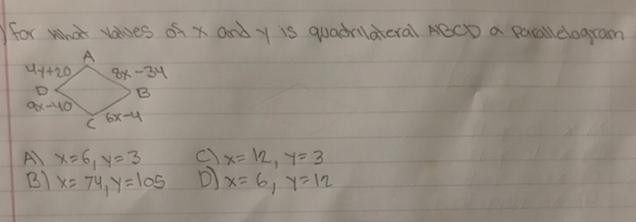 ) for what values of x and y is quadrilateral ABCD a parallelogram
A
4y+20 8x-34
D B
9x-40
C 6x-4
A) x=6, y=3 C) x=12, y=3
B) x=74, y=105 D) x=6, y=12